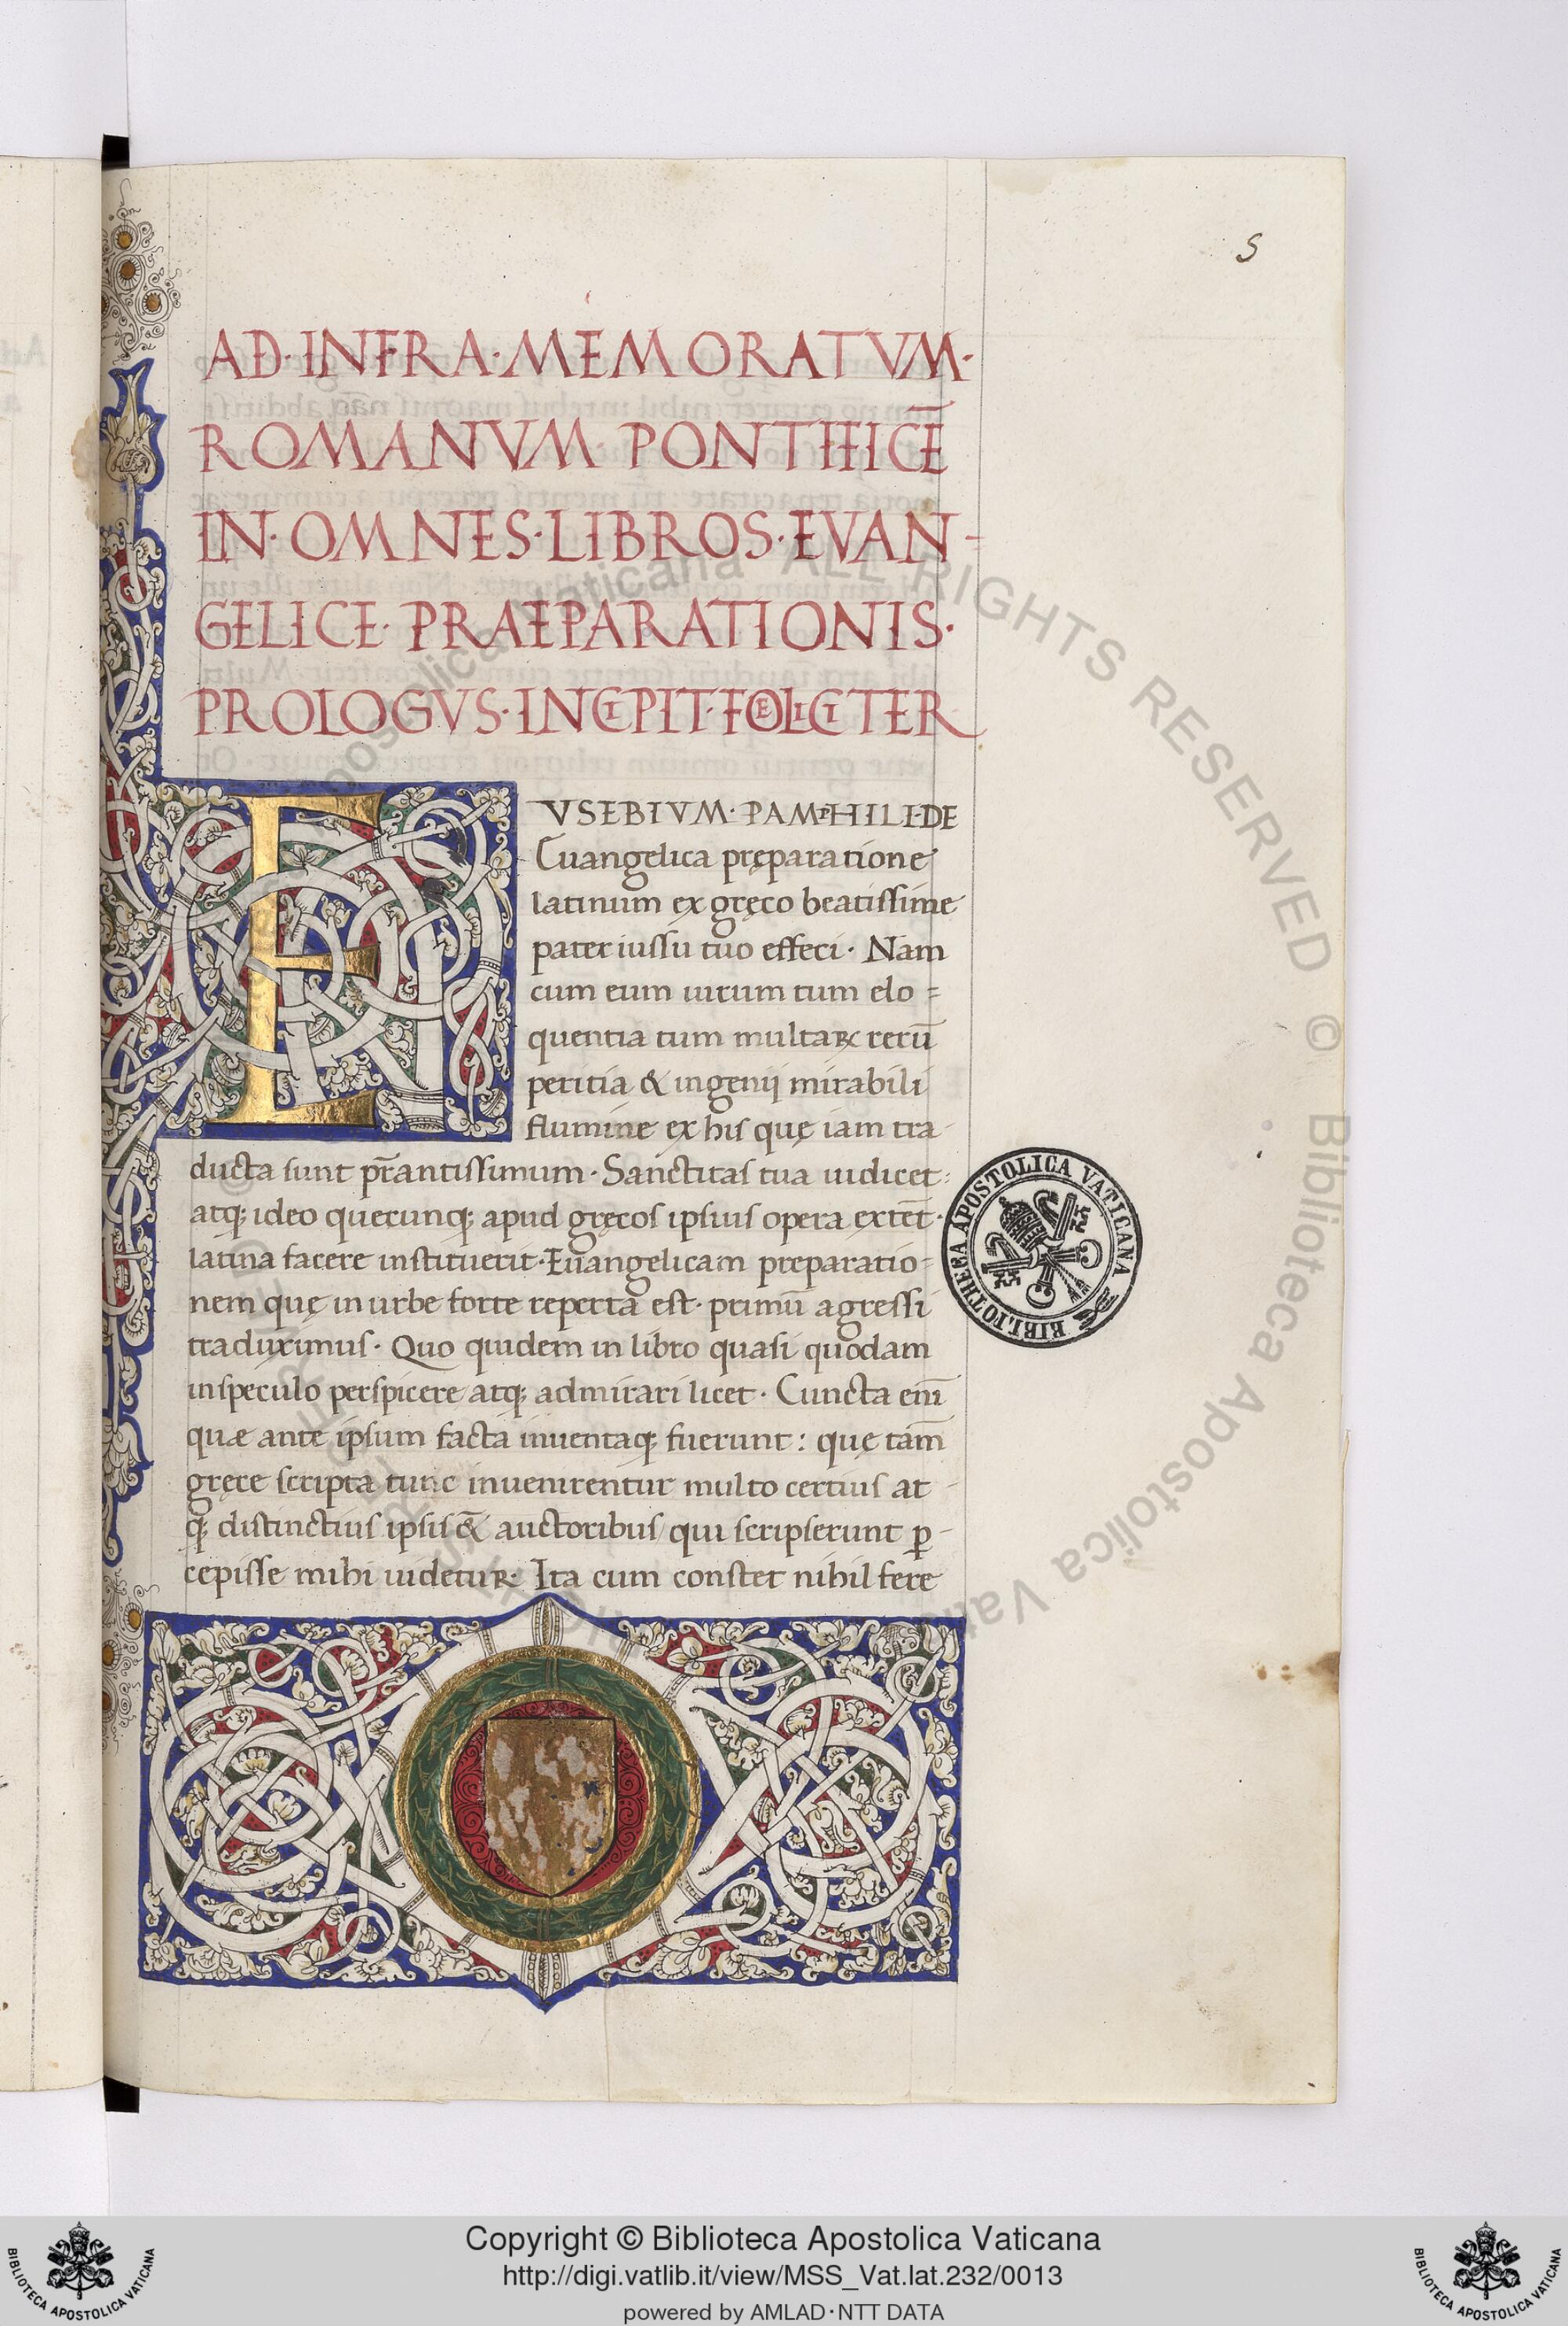 5
AD·INFRA·MEMORATVM·
ROMANVM·PONTIFICĒ
IN·OMNES·LIBROS·EVAN-
GELICE·PRAEPARATIONIS·
PROLOGVS·INCIPIT·FOELICITER
EVSEBIVM·PAMPHILI·DE
Euangelica pręparatione
latinum ex gręco beatissime
pater iussu tuo effeci· Nam
cum eum uirum tum elo=
quentia tum multaꝝ rerū
peritia & ingenij mirabili
flumine ex his quę iam tra-
ducta sunt pr̄antissimum· Sanctitas tua iudicet:
atq; ideo quecunq; apud gręcos ipsius opera extēt·
latina facere instituerit· Euangelicam preparatio-
nem quę in urbe forte reperta est· primū agressi
traduximus· Quo quidem in libro quasi quodam
in speculo perspicere atq; admirari licet· Cuncta eni͞
quæ ante ipsum facta inuentaq; fuerunt: quę tam̄
gręce scripta tunc inuenirentur multo certius at-
q; distinctius ipsis &̄ auctoribus qui scripserunt ꝑ-
cepisse mihi uidetur· Ita cum constet nihil fere
BIBLIOTHECA APOSTOLICA VATICANA
© Biblioteca Apostolica Vaticana ALL RIGHTS RESERVED © Biblioteca Apostolica Vaticana
Copyright © Biblioteca Apostolica Vaticana
http://digi.vatlib.it/view/MSS_Vat.lat.232/0013
powered by AMLAD·NTT DATA
BIBLIOTECA APOSTOLICA VATICANA
BIBLIOTECA APOSTOLICA VATICANA